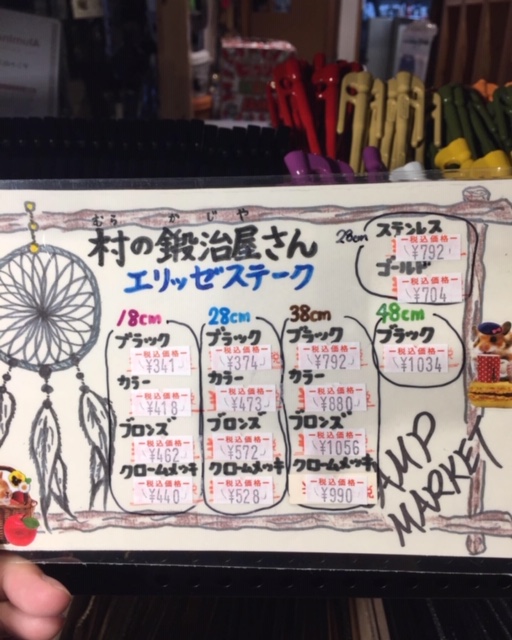 むら かじや
村の鍛冶屋さん
エリッゼステーク
28cm
ステンレス
税込価格
¥792
ゴールド
税込価格
¥704
18cm
ブラック
税込価格
¥341
カラー
税込価格
¥418
ブロンズ
税込価格
¥462
クロームメッキ
税込価格
¥440
28cm
ブラック
税込価格
¥374
カラー
税込価格
¥473
ブロンズ
税込価格
¥572
クロームメッキ
税込価格
¥528
38cm
ブラック
税込価格
¥792
カラー
税込価格
¥880
ブロンズ
税込価格
¥1056
クロームメッキ
税込価格
¥990
48cm
ブラック
税込価格
¥1034
AMP
MARKET